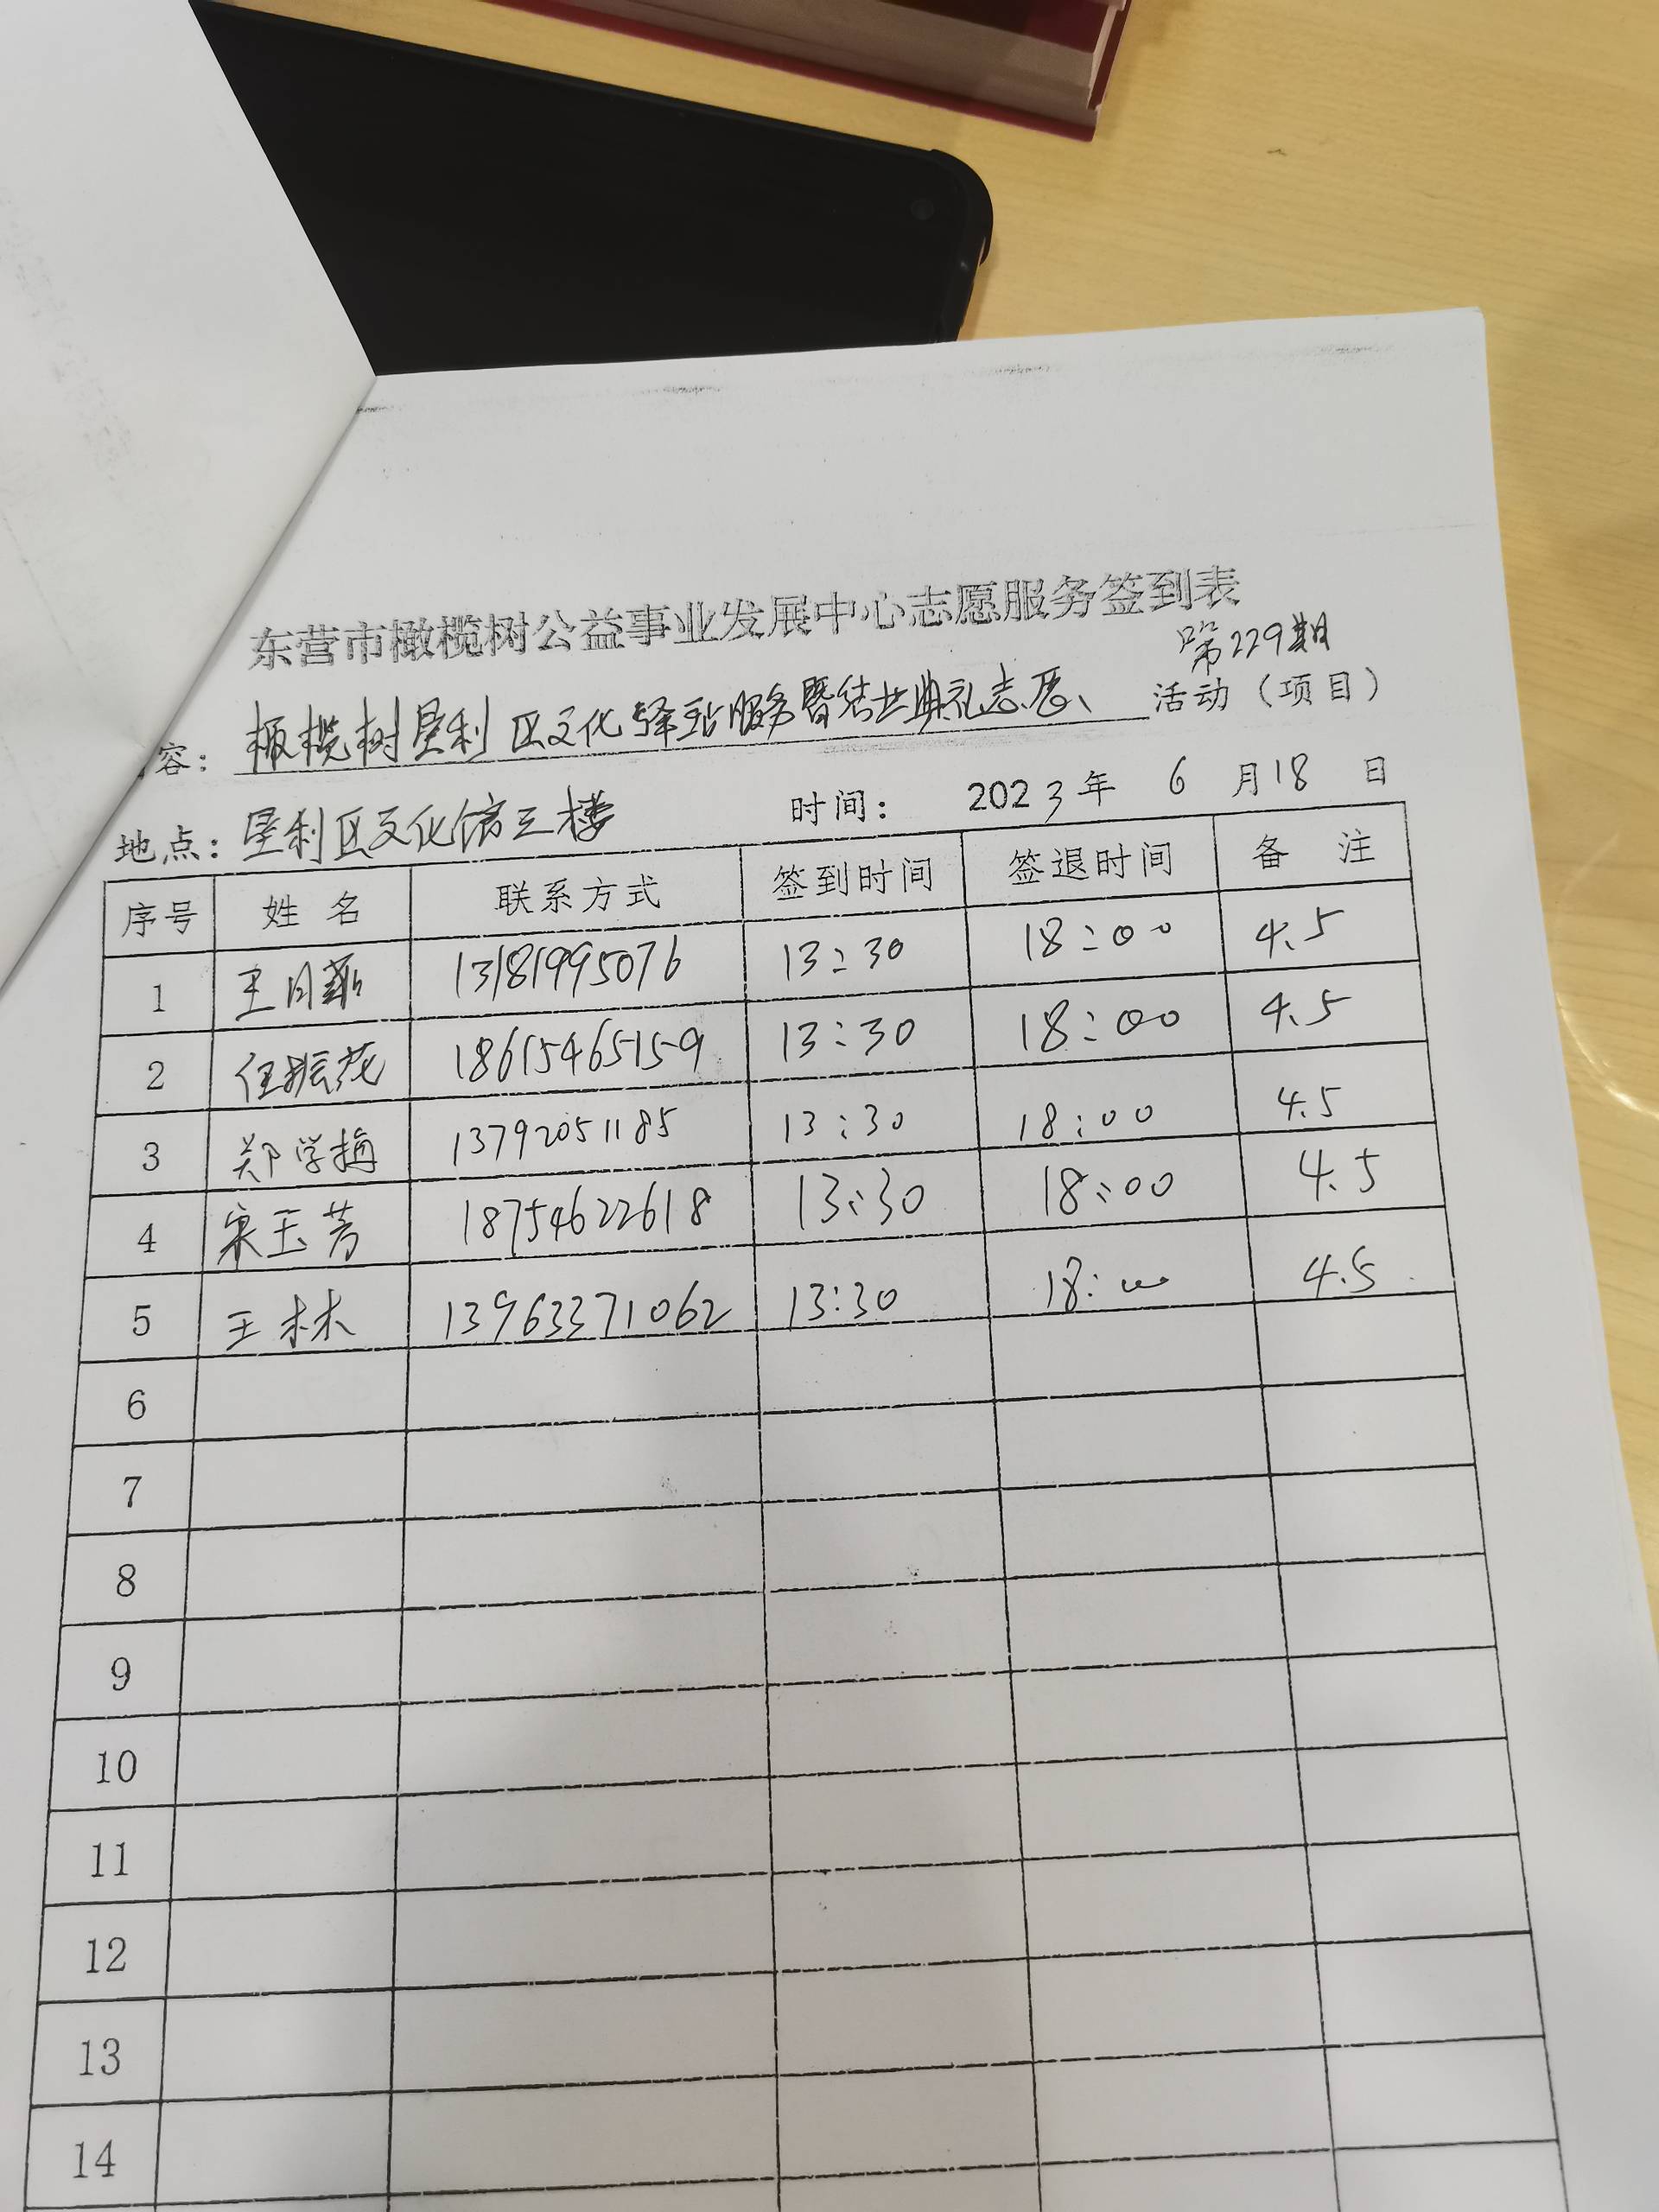 东营市橄榄树公益事业发展中心志愿服务签到表
第229期
容：橄榄树垦利区文化驿站服务暨结业典礼志愿、活动（项目）
地点：垦利区文化馆三楼 时间：2023年 6 月18 日
序号 姓 名 联系方式 签到时间 签退时间 备 注
1 王月 13181995076 13:30 18:00 4.5
2 任振花 18615465159 13:30 18:00 4.5
3 郑学梅 13792051185 13:30 18:00 4.5
4 宋玉芳 18754622618 13:30 18:00 4.5
5 王林 13963371062 13:30 18:00 4.5
6
7
8
9
10
11
12
13
14